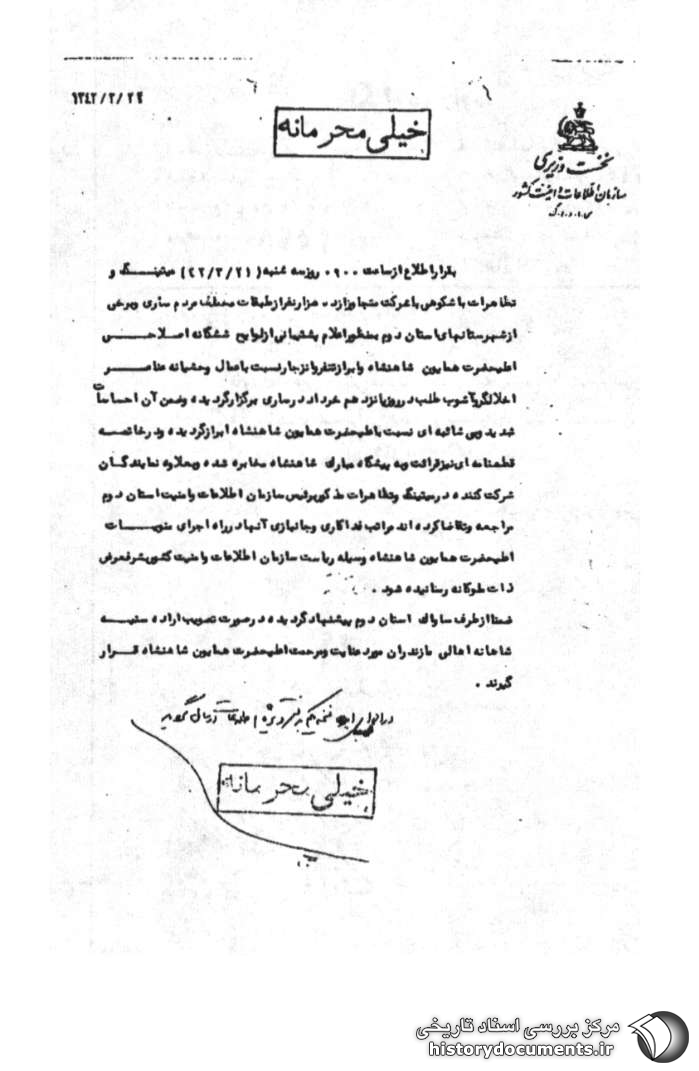 ۱۳۴۲/۳/۲۹
خیلی محرمانه
نخست وزیری
سازمان اطلاعات و امنیت کشور
بقرار اطلاع از ساعت ۰۹۰۰ روز سه شنبه (۴۲/۳/۲۱) میتینگ و
تظاهرات با شکوهی با شرکت متجاوز از ده هزار نفر از طبقات مختلف مردم ساری و برخی
از شهرستانهای استان دوم بمنظور اعلام پشتیبانی از لوایح ششگانه اصلاحی
اعلیحضرت همایون شاهنشاه و ابراز تنفر و انزجار نسبت باعمال وحشیانه عناصر
اخلالگر و آشوب طلب در روز پانزدهم خرداد در ساری برگزار گردیده و ضمن آن احساسات
شدید و بی شائبه ای نسبت باعلیحضرت همایون شاهنشاه ابراز گردیده و در خاتمه
قطعنامه ای نیز قرائت و به پیشگاه مبارک شاهنشاه مخابره شده و بعلاوه نمایندگان
شرکت کننده در میتینگ و تظاهرات مذکور برئیس سازمان اطلاعات و امنیت استان دوم
مراجعه و تقاضا کرده اند مراتب فداکاری و جانبازی آنها در راه اجرای منویات
اعلیحضرت همایون شاهنشاه وسیله ریاست سازمان اطلاعات و امنیت کشور بشرفعرض
ذات ملوکانه رسانیده شود .
ضمنا از طرف ساواک استان دوم پیشنهاد گردیده در صورت تصویب اراده سنیه
شاهانه اهالی مازندران مورد عنایت و مرحمت اعلیحضرت همایون شاهنشاه قرار
گیرند .
خیلی محرمانه
مرکز بررسی اسناد تاریخی
historydocuments.ir